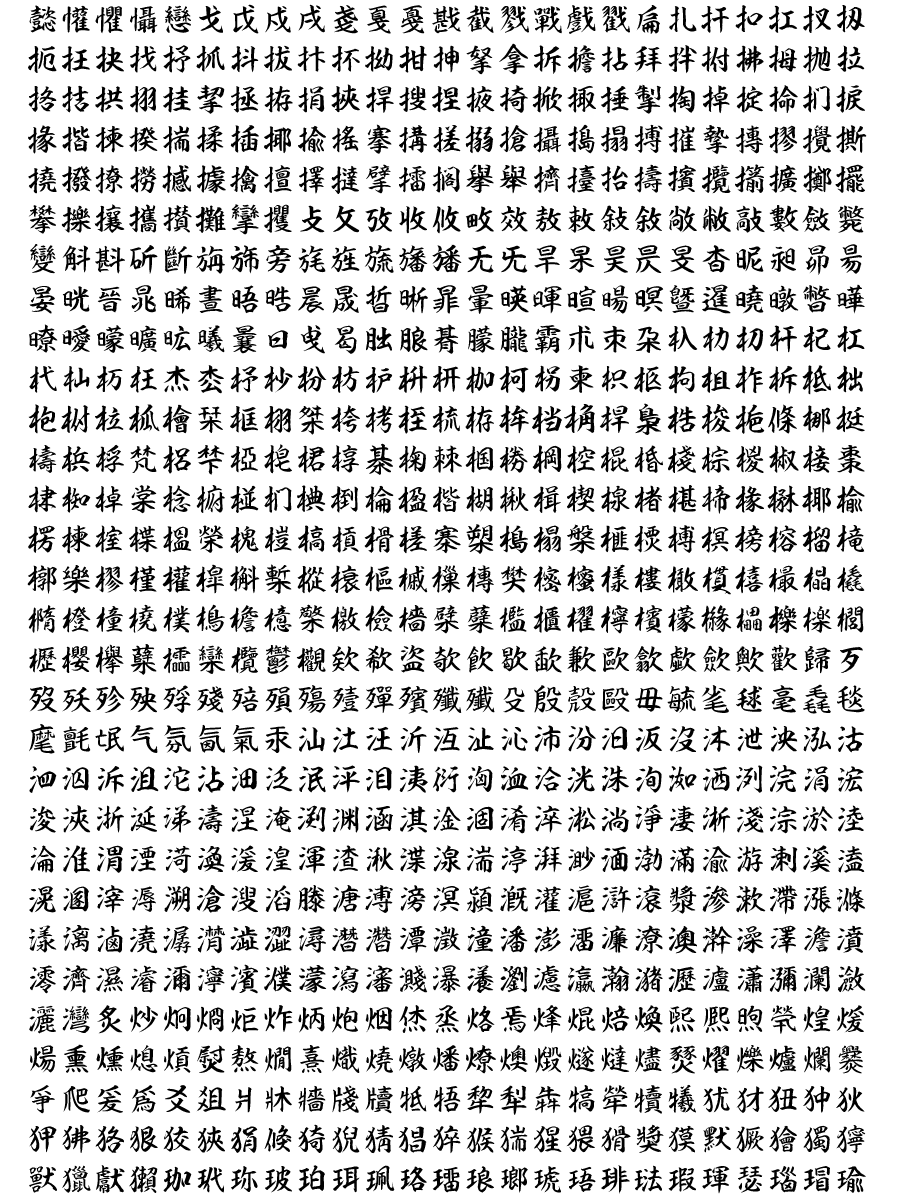 懿懽懼懾戀戈戉戍戌戔戛戞戡截戮戰戲戳扁扎扞扣扛扠扨
扼抂抉找抒抓抖拔抃抔拗拑抻拏拿拆擔拈拜拌拊拂拇抛拉
挌拮拱挧挂挈拯拵捐挾捍搜捏掖掎掀掫捶掣掏掉掟掵捫捩
掾揩揀揆揣揉插揶揄搖搴搆搓搦搶攝搗搨搏摧摯摶摎攪撕
撓撥撩撈撼據擒擅擇撻擘擂擱擧舉擠擡抬擣擯攬擶擴擲擺
攀擽攘攜攅攤攣攫攴攵攷收攸畋效敖敕敍敘敞敝敲數斂斃
變斛斟斫斷旃旆旁旄旌旒旛旙无旡旱杲昊昃旻杳昵昶昴昜
晏晄晉晁晞晝晤晧晨晟晢晰暃暈暎暉暄暘暝曁暹曉暾暼曄
暸曖曚曠昿曦曩曰曵曷朏朖朞朦朧霸朮朿朶杁朸朷杆杞杠
杙杣杤枉杰枩杼杪枌枋枦枡枅枷柯枴柬枳柩枸柤柞柝柢柮
枹柎柆柧檜栞框栩桀桍栲桎梳栫桙档桷桿梟梏梭梔條梛梃
檮梹桴梵梠梺椏梍桾椁棊椈棘椢椦棡椌棍棔棧棕椶椒椄棗
棣椥棹棠棯椨椪椚椣椡棆楹楷楜楸楫楔楾楮椹楴椽楙椰楡
楞楝榁楪榲榮槐榿槁槓榾槎寨槊槝榻槃榧樮榑榠榜榕榴樟
槨樂樛槿權槹槲槧樅榱樞槭樔槫樊樒櫁樣樓橄樌橲樶橸橇
橢橙橦橈樸樢檐檍檠檄檢檣檗蘗檻櫃櫂檸檳檬櫞櫑櫟檪櫚
櫪櫻欅蘖櫺欒欖鬱欟欸欷盜欹飮歇歃歉歐歙歔歛歟歡歸歹
歿殀殄殃殍殘殕殞殤殪殫殯殲殱殳殷殼毆毋毓毟毬毫毳毯
麾氈氓气氛氤氣汞汕汢汪沂沍沚沁沛汾汨汳沒沐泄泱泓沽
泗泅泝沮沱沾沺泛泯泙泪洟衍洶洫洽洸洙洵洳洒洌浣涓浤
浚浹浙涎涕濤涅淹渕渊涵淇淦涸淆淬淞淌淨淒淅淺淙淤淕
淪淮渭湮渮渙湲湟渾渣湫渫湶湍渟湃渺湎渤滿渝游溂溪溘
滉溷滓溽溯滄溲滔滕溏溥滂溟潁漑灌滬滸滾漿滲漱滯漲滌
漾漓滷澆潺潸澁澀潯潛濳潭澂潼潘澎澑濂潦澳澣澡澤澹濆
澪濟濕濬濔濘濱濮濛瀉瀋濺瀑瀁瀏濾瀛瀚潴瀝瀘瀟瀰瀾瀲
灑灣炙炒炯烱炬炸炳炮烟烋烝烙焉烽焜焙煥煕熈煦煢煌煖
煬熏燻熄熕熨熬燗熹熾燒燉燔燎燠燬燧燵燼燹燿爍爐爛爨
爭爬爰爲爻爼爿牀牆牋牘牴牾犂犁犇犒犖犢犧犹犲狃狆狄
狎狒狢狠狡狹狷倏猗猊猜猖猝猴猯猩猥猾獎獏默獗獪獨獰
獸獵獻獺珈玳珎玻珀珥珮珞璢琅瑯琥珸琲琺瑕琿瑟瑙瑁瑜